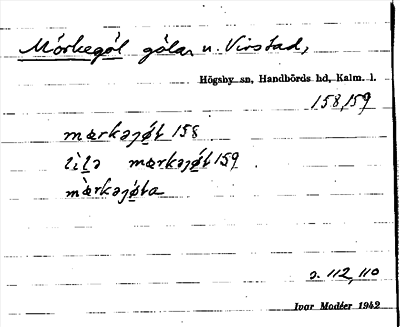 Mörkegöl gölar n. Virstad,
Högsby sn, Handbörds hd, Kalm. l.
158, 159
mærkəjø̀t 158
lìlə mærkəjǿt 159
mæ̀rkəjø̀ta
s. 112, 110
Ivar Modéer 1942